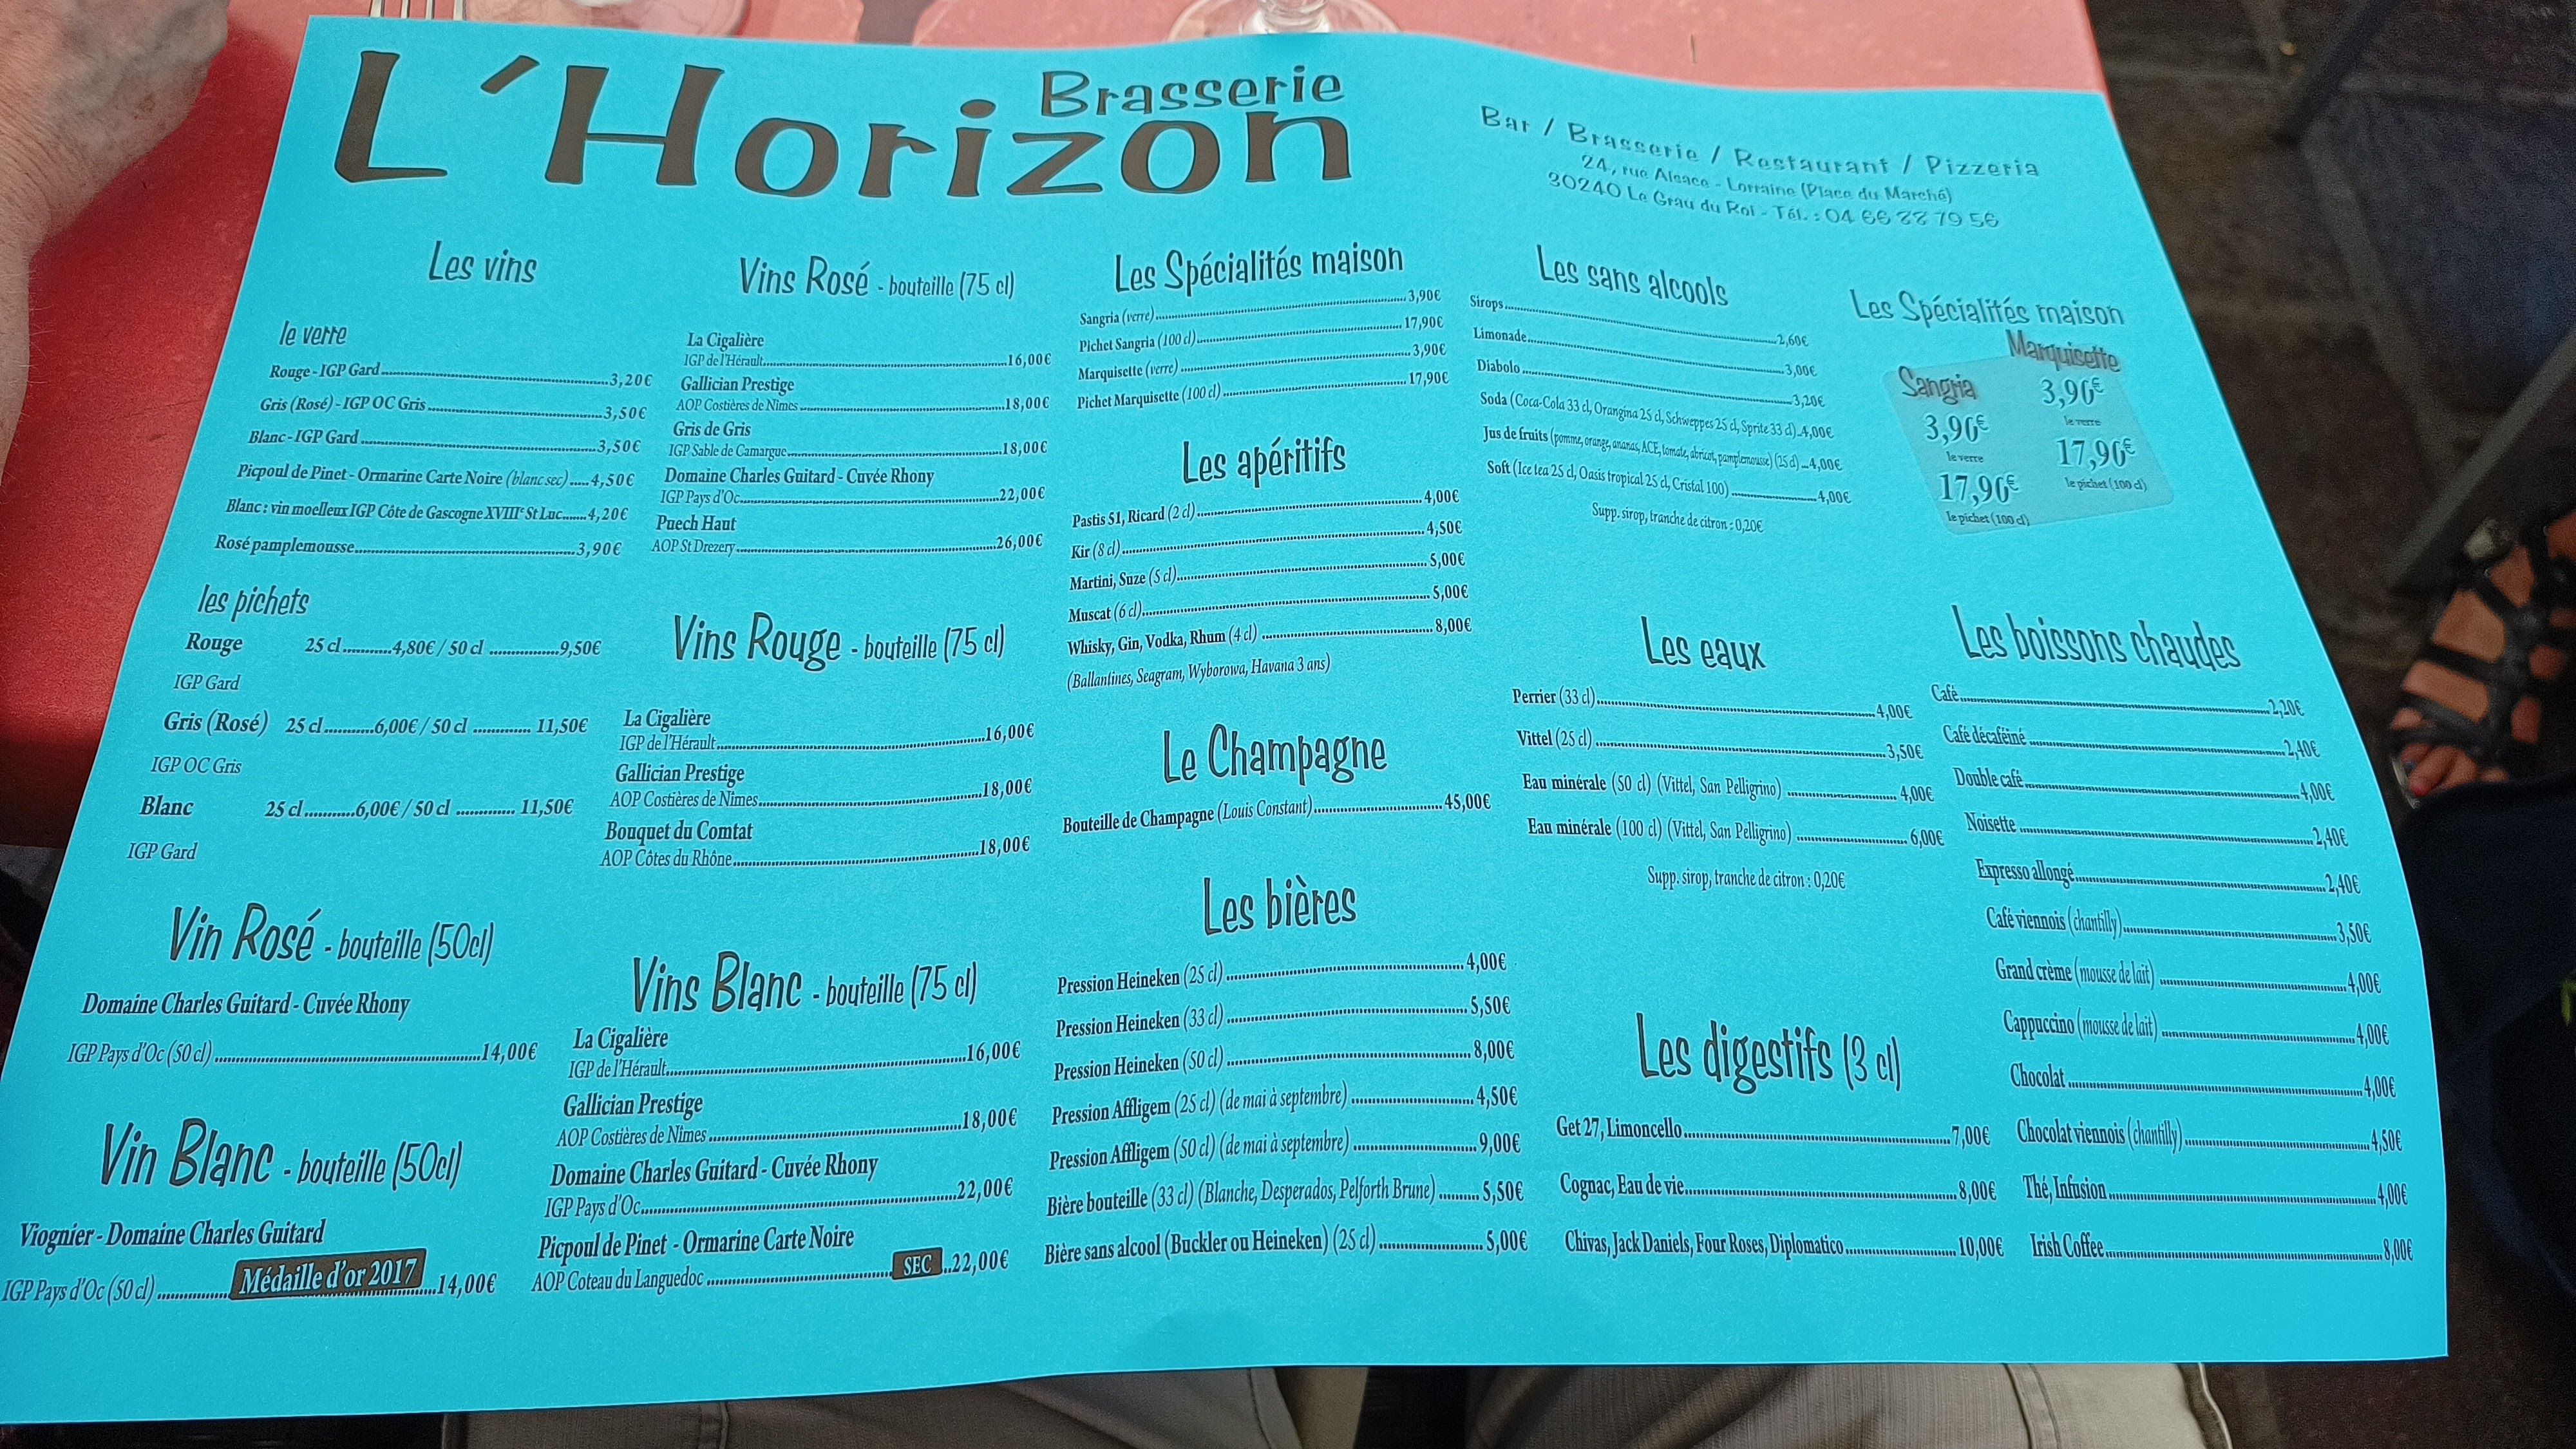 L'Horizon
Brasserie
Bar / Brasserie / Restaurant / Pizzeria
24, rue Alsace - Lorraine (Place du Marché)
30240 Le Grau du Roi - Tél. : 04 66 88 79 56
Les vins
le verre
Rouge - IGP Gard 3,20€
Gris (Rosé) - IGP OC Gris 3,50€
Blanc - IGP Gard 3,50€
Picpoul de Pinet - Ormarine Carte Noire (blanc sec) 4,50€
Blanc : vin moelleux IGP Côte de Gascogne XVIIIe St Luc 4,20€
Rosé pamplemousse 3,90€
les pichets
Rouge 25 cl 4,80€ / 50 cl 9,50€
IGP Gard
Gris (Rosé) 25 cl 6,00€ / 50 cl 11,50€
IGP OC Gris
Blanc 25 cl 6,00€ / 50 cl 11,50€
IGP Gard
Vin Rosé - bouteille (50cl)
Domaine Charles Guitard - Cuvée Rhony
IGP Pays d'Oc (50 cl) 14,00€
Vin Blanc - bouteille (50cl)
Viognier - Domaine Charles Guitard
IGP Pays d'Oc (50 cl) Médaille d'or 2017 14,00€
Vins Rosé - bouteille (75 cl)
La Cigalière
IGP de l'Hérault 16,00€
Gallician Prestige
AOP Costières de Nîmes 18,00€
Gris de Gris
IGP Sable de Camargue 18,00€
Domaine Charles Guitard - Cuvée Rhony
IGP Pays d'Oc 22,00€
Puech Haut
AOP St Drezery 26,00€
Vins Rouge - bouteille (75 cl)
La Cigalière
IGP de l'Hérault 16,00€
Gallician Prestige
AOP Costières de Nîmes 18,00€
Bouquet du Comtat
AOP Côtes du Rhône 18,00€
Vins Blanc - bouteille (75 cl)
La Cigalière
IGP de l'Hérault 16,00€
Gallician Prestige
AOP Costières de Nîmes 18,00€
Domaine Charles Guitard - Cuvée Rhony
IGP Pays d'Oc 22,00€
Picpoul de Pinet - Ormarine Carte Noire
AOP Coteau du Languedoc SEC 22,00€
Les Spécialités maison
Sangria (verre) 3,90€
Pichet Sangria (100 cl) 17,90€
Marquisette (verre) 3,90€
Pichet Marquisette (100 cl) 17,90€
Les apéritifs
Pastis 51, Ricard (2 cl) 4,00€
Kir (8 cl) 4,50€
Martini, Suze (5 cl) 5,00€
Muscat (6 cl) 5,00€
Whisky, Gin, Vodka, Rhum (4 cl) 8,00€
(Ballantines, Seagram, Wyborowa, Havana 3 ans)
Le Champagne
Bouteille de Champagne (Louis Constant) 45,00€
Les bières
Pression Heineken (25 cl) 4,00€
Pression Heineken (33 cl) 5,50€
Pression Heineken (50 cl) 8,00€
Pression Affligem (25 cl) (de mai à septembre) 4,50€
Pression Affligem (50 cl) (de mai à septembre) 9,00€
Bière bouteille (33 cl) (Blanche, Desperados, Pelforth Brune) 5,50€
Bière sans alcool (Buckler ou Heineken) (25 cl) 5,00€
Les sans alcools
Sirops 2,60€
Limonade 3,00€
Diabolo 3,20€
Soda (Coca-Cola 33 cl, Orangina 25 cl, Schweppes 25 cl, Sprite 33 cl) 4,00€
Jus de fruits (pomme, orange, ananas, ACE, tomate, abricot, pamplemousse) (25 cl) 4,00€
Soft (Ice tea 25 cl, Oasis tropical 25 cl, Cristal 100) 4,00€
Supp. sirop, tranche de citron : 0,20€
Les Spécialités maison
Sangria
3,90€
le verre
17,90€
le pichet (100 cl)
Marquisette
3,90€
le verre
17,90€
le pichet (100 cl)
Les eaux
Perrier (33 cl) 4,00€
Vittel (25 cl) 3,50€
Eau minérale (50 cl) (Vittel, San Pelligrino) 4,00€
Eau minérale (100 cl) (Vittel, San Pelligrino) 6,00€
Supp. sirop, tranche de citron : 0,20€
Les digestifs (3 cl)
Get 27, Limoncello 7,00€
Cognac, Eau de vie 8,00€
Chivas, Jack Daniels, Four Roses, Diplomatico 10,00€
Les boissons chaudes
Café 2,20€
Café décaféiné 2,40€
Double café 4,00€
Noisette 2,40€
Expresso allongé 2,40€
Café viennois (chantilly) 3,50€
Grand crème (mousse de lait) 4,00€
Cappuccino (mousse de lait) 4,00€
Chocolat 4,00€
Chocolat viennois (chantilly) 4,50€
Thé, Infusion 4,00€
Irish Coffee 8,00€